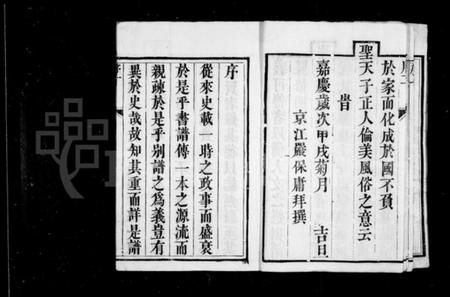 於家而化成於國不負
聖天子正人倫美風俗之意云
旹
嘉慶歲次甲戌菊月 吉旦
京江嚴保庸拜撰
序
從來史載一時之政事而盛衰
於是乎書譜傳一本之源流而
親疎於是乎别譜之為義豈有
異於史哉故知其重而詳是譜